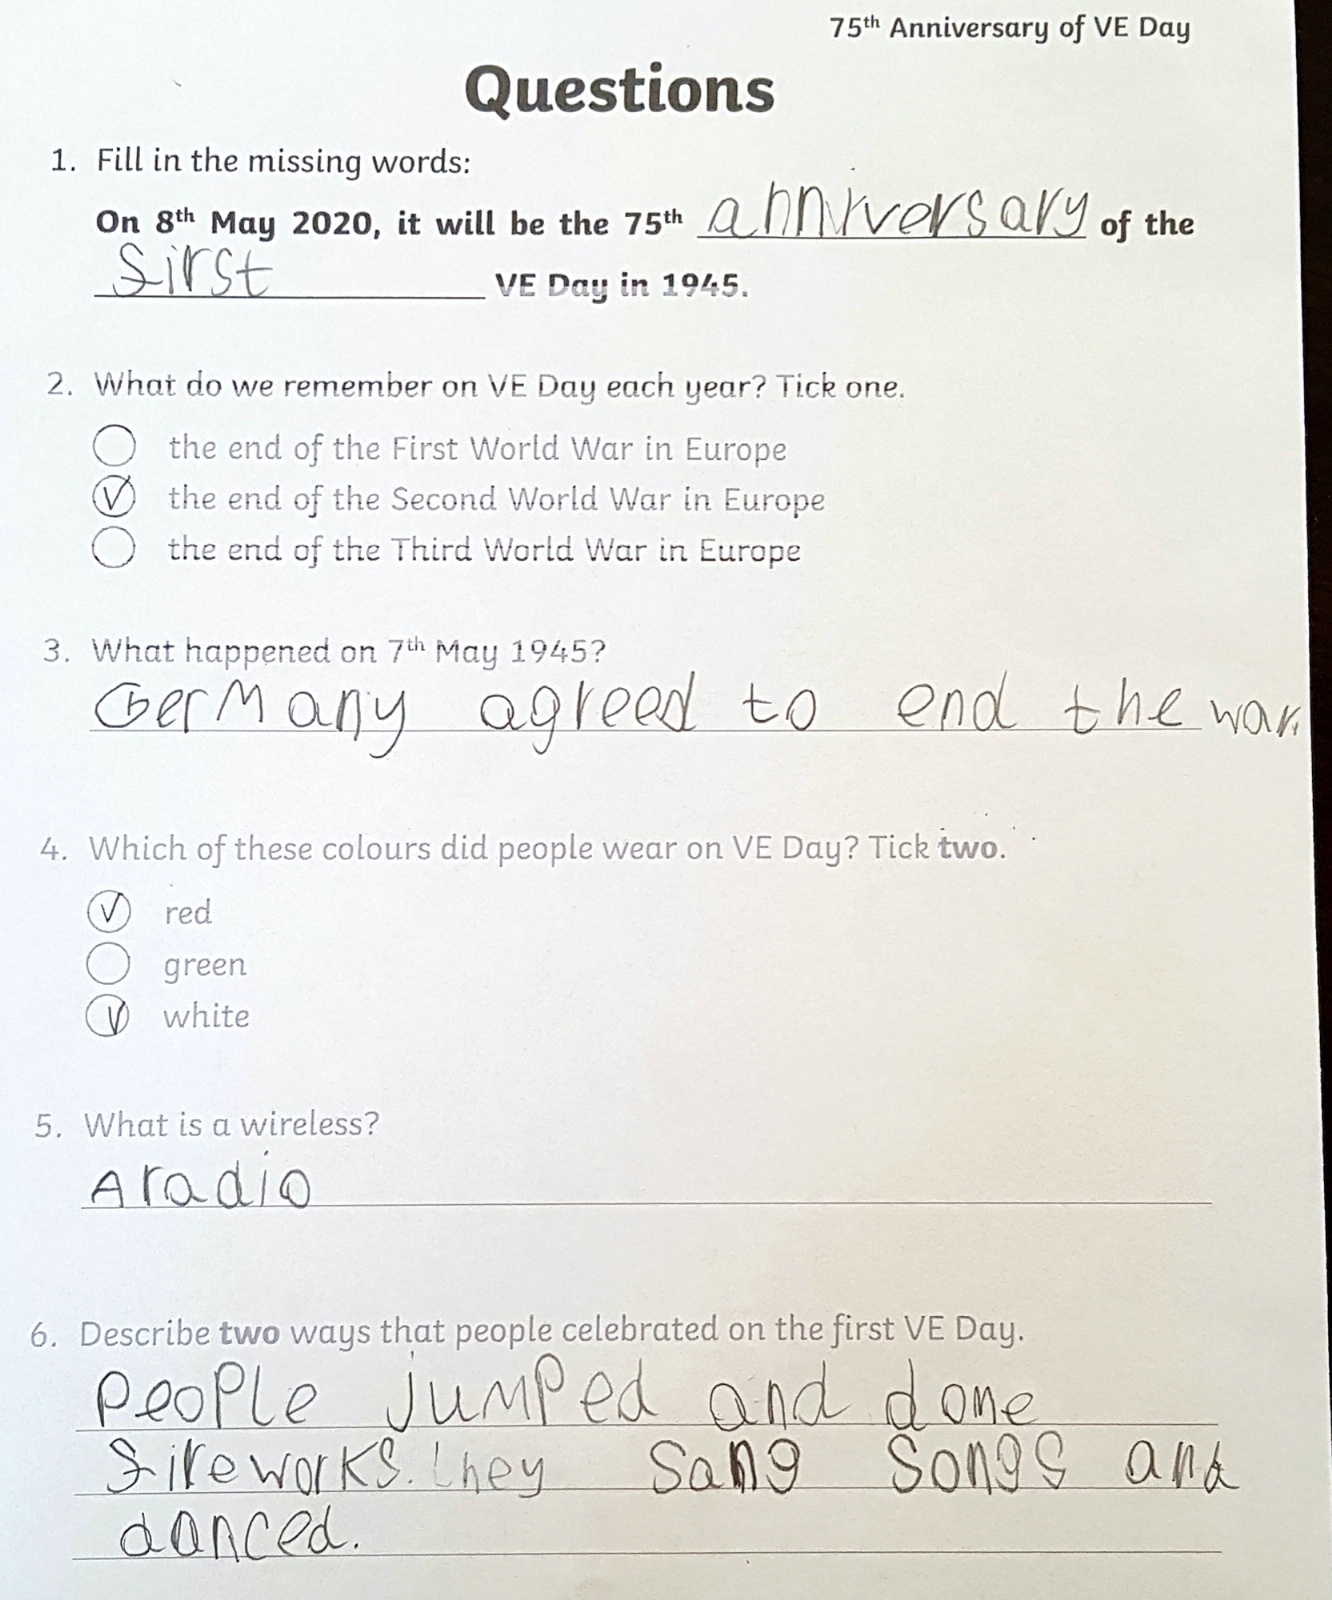 75th Anniversary of VE Day
Questions
1. Fill in the missing words:
On 8th May 2020, it will be the 75th anniversary of the
first VE Day in 1945.
2. What do we remember on VE Day each year? Tick one.
the end of the First World War in Europe
✓ the end of the Second World War in Europe
the end of the Third World War in Europe
3. What happened on 7th May 1945?
Germany agreed to end the war.
4. Which of these colours did people wear on VE Day? Tick two.
✓ red
green
✓ white
5. What is a wireless?
A radio
6. Describe two ways that people celebrated on the first VE Day.
People jumped and done
fireworks. they sang songs and
danced.